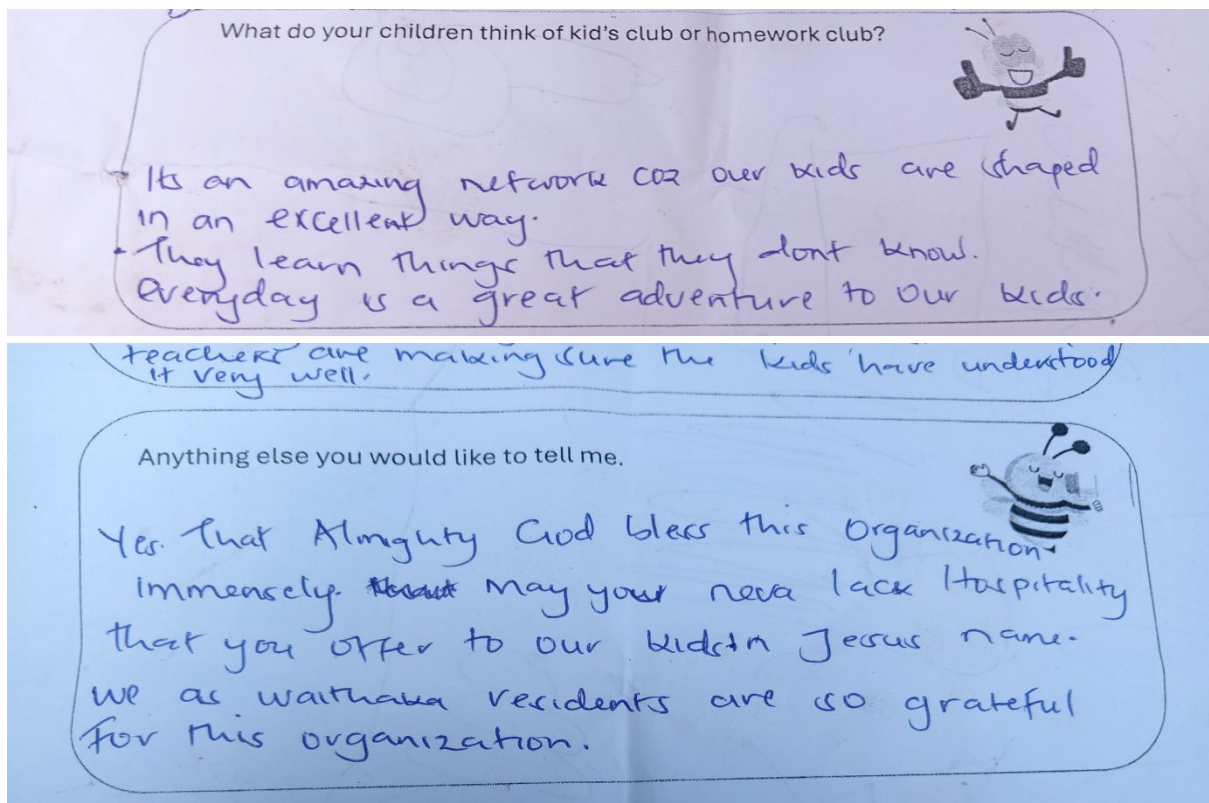 What do your children think of kid's club or homework club?
• Its an amazing network coz our kids are shaped
in an excellent way.
• They learn things that they dont know.
everyday is a great adventure to our kids.
teachers are making sure the kids have understood
it very well.
Anything else you would like to tell me.
Yes. That Almighty God bless this Organization
immensely. May your neva lack Hospitality
that you offer to our kids in Jesus name.
We as waithaka residents are so grateful
for this organization.